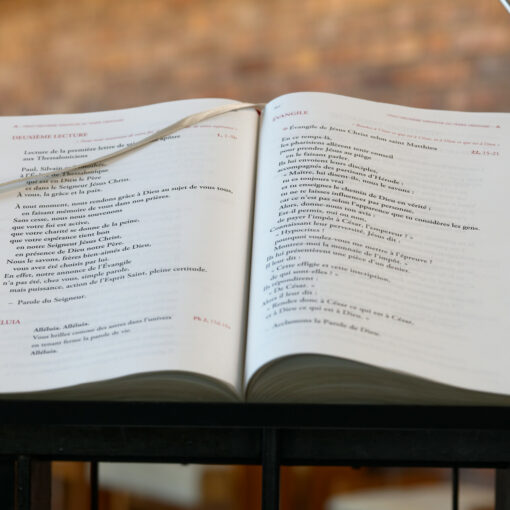 DEUXIÈME LECTURE
1, 1-5b
Lecture de la première lettre de saint Paul apôtre
aux Thessaloniciens
Paul, Silvain et Timothée,
à l'Église de Thessalonique
qui est en Dieu le Père
et dans le Seigneur Jésus Christ.
À vous, la grâce et la paix.
À tout moment, nous rendons grâce à Dieu au sujet de vous tous,
en faisant mémoire de vous dans nos prières.
Sans cesse, nous nous souvenons
que votre foi est active,
que votre charité se donne de la peine,
que votre espérance tient bon
en notre Seigneur Jésus Christ,
en présence de Dieu notre Père.
Nous le savons, frères bien-aimés de Dieu,
vous avez été choisis par lui.
En effet, notre annonce de l'Évangile
n'a pas été, chez vous, simple parole,
mais puissance, action de l'Esprit Saint, pleine certitude.
– Parole du Seigneur.
LUIA
Ph 2, 15d.16a
Alléluia. Alléluia.
Vous brillez comme des astres dans l'univers
en tenant ferme la parole de vie.
Alléluia.
ÉVANGILE
« Rendez à César ce qui est à César, et à Dieu ce qui est à Dieu »
Évangile de Jésus Christ selon saint Matthieu
22, 15-21
En ce temps-là,
les pharisiens allèrent tenir conseil
pour prendre Jésus au piège
en le faisant parler.
Ils lui envoient leurs disciples,
accompagnés des partisans d'Hérode :
« Maître, lui disent-ils, nous le savons :
tu es toujours vrai
et tu enseignes le chemin de Dieu en vérité ;
tu ne te laisses influencer par personne,
car ce n'est pas selon l'apparence que tu considères les gens.
Alors, donne-nous ton avis :
Est-il permis, oui ou non,
de payer l'impôt à César, l'empereur ? »
Connaissant leur perversité, Jésus dit :
« Hypocrites !
pourquoi voulez-vous me mettre à l'épreuve ?
Montrez-moi la monnaie de l'impôt. »
Ils lui présentèrent une pièce d'un denier.
Il leur dit :
« Cette effigie et cette inscription,
de qui sont-elles ? »
Ils répondirent :
« De César. »
Alors il leur dit :
« Rendez donc à César ce qui est à César,
et à Dieu ce qui est à Dieu. »
– Acclamons la Parole de Dieu.